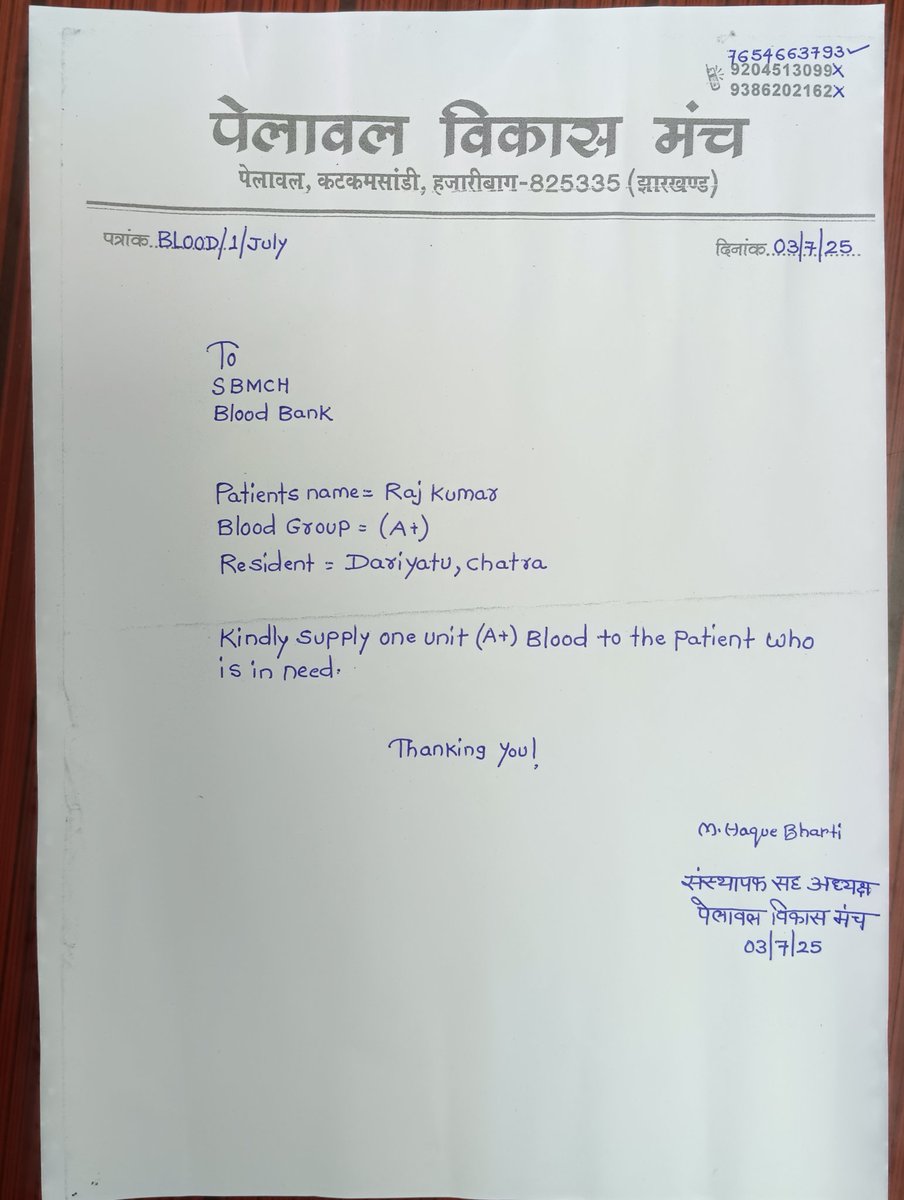 7654663793✓
9204513099X
9386202162X
पेलावल विकास मंच
पेलावल, कटकमसांडी, हजारीबाग-825335 (झारखण्ड)
पत्रांक..BLOOD/1/July
दिनांक..03/7/25..
To
SBMCH
Blood Bank
Patients name = Raj Kumar
Blood Group = (A+)
Resident = Dariyatu, Chatra
Kindly supply one unit (A+) Blood to the patient who
is in need.
Thanking you!
M. Haque Bharti
संस्थापक सह अध्यक्ष
पेलावल विकास मंच
03/7/25